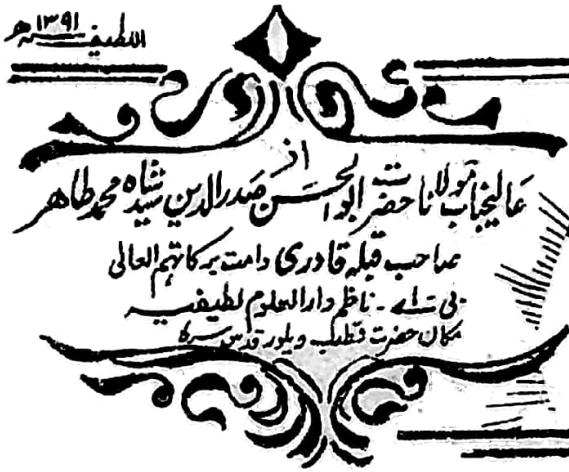 اللطیف ۱۳۹۱ھ
از
عالیجناب مولانا حضرت ابوالحسن صدرالدین سید شاہ محمد طاہر
صاحب قبلہ قادری دامت برکاتہم العالی
بی اے - ناظم دارالعلوم لطیفیہ
مکان حضرت قطب ویلور قدس سرہ